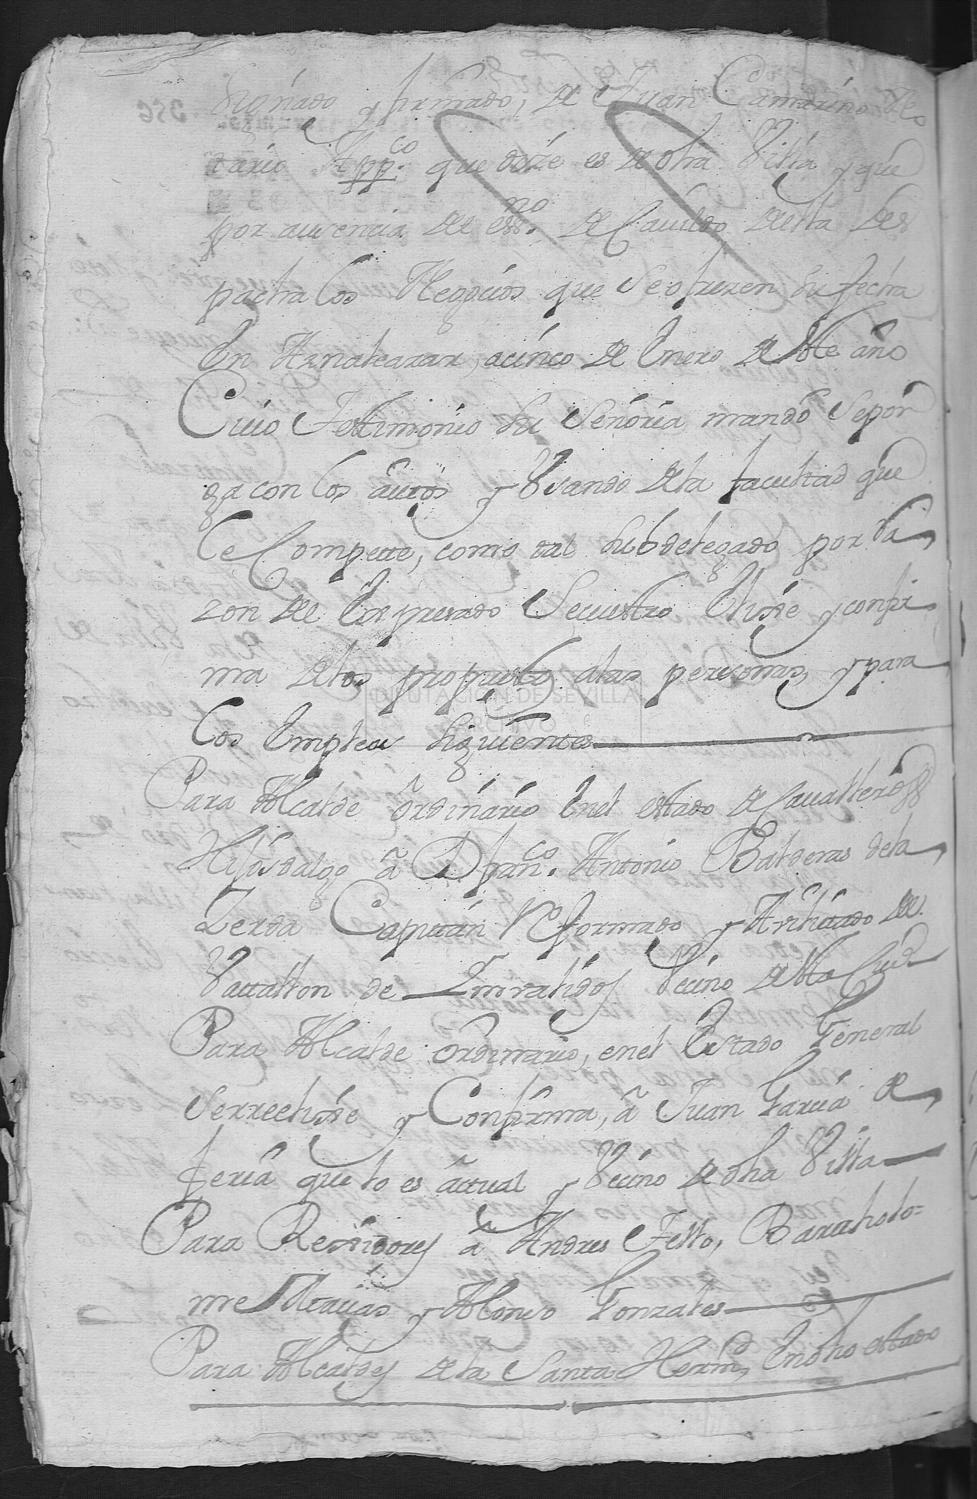 signado y firmado, de Juan Camarino No
tario App.co que dize es de dha Villa y que
por ausencia del ess.no de Cavildo della des
pacha los Negocios que se ofrezen su fecha
En Aznalcazar, a cinco de Enero deste año
Cuio Testimonio su Señoria mandó se pon
ga con los autos y Vsando dela facultad que
le Compette, como tal subdelegado por ra
zon de Secuestro Elije y confi
rma delos propuestos, alas personas, y para
los Empleos siguientes
Para Alcalde ordinario Enel estado de Cavalleros
Hijosdalgo â D Fran.co Antonio Balderas dela
Zerda Capitan Reformado y del
Battallon de Imbalidos Vecino desta Ciud
Para Alcalde ordinario, enel Estado General
Serrechije y Confirma, â Juan Garcia de
feria que lo es actual y Vecino de dha Villa
Para Rexidores â Andres Tello, Bartholo=
me Macias y Alonso Gonzales
Para Alcaldes dela Santa Hermd, En dho estado
DIPUTACIÓN DE SEVILLA
ARCHIVO